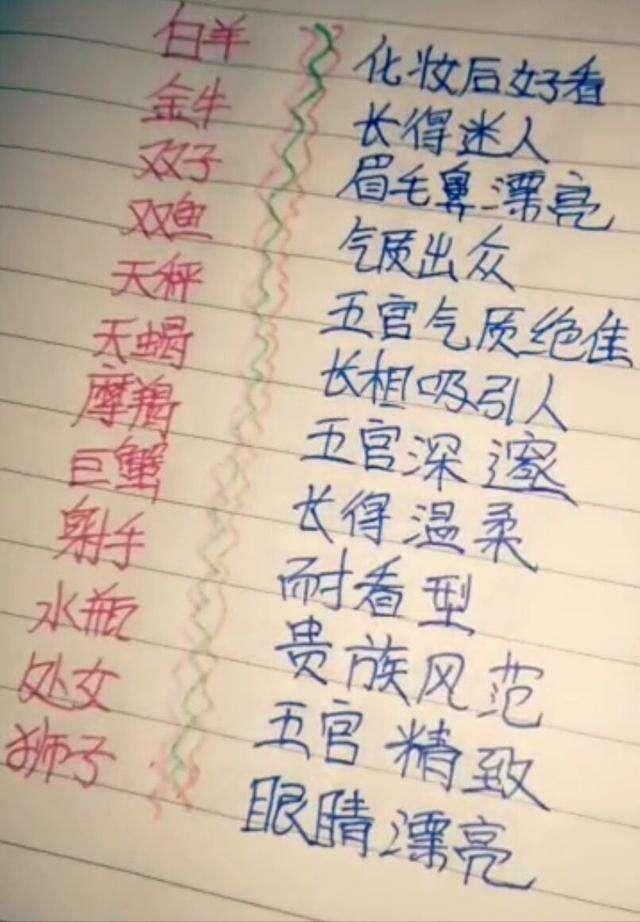 白羊 化妆后好看
金牛 长得迷人
双子 眉毛鼻漂亮
双鱼 气质出众
天秤 五官气质绝佳
天蝎 长相吸引人
摩羯 五官深邃
巨蟹 长得温柔
射手 耐看型
水瓶 贵族风范
处女 五官精致
狮子 眼睛漂亮